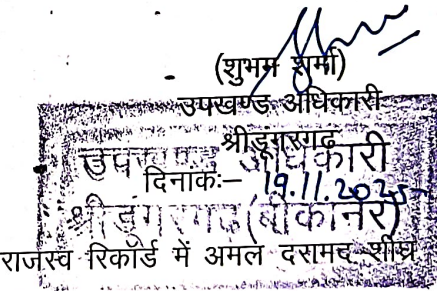 (शुभम शर्मा)
उपखण्ड अधिकारी
श्रीडूंगरगढ
उपखण्ड अधिकारी
दिनांकः– 19.11.2025
श्रीडूंगरगढ (बीकानेर)
राजस्व रिकॉर्ड में अमल दरामद शीघ्र